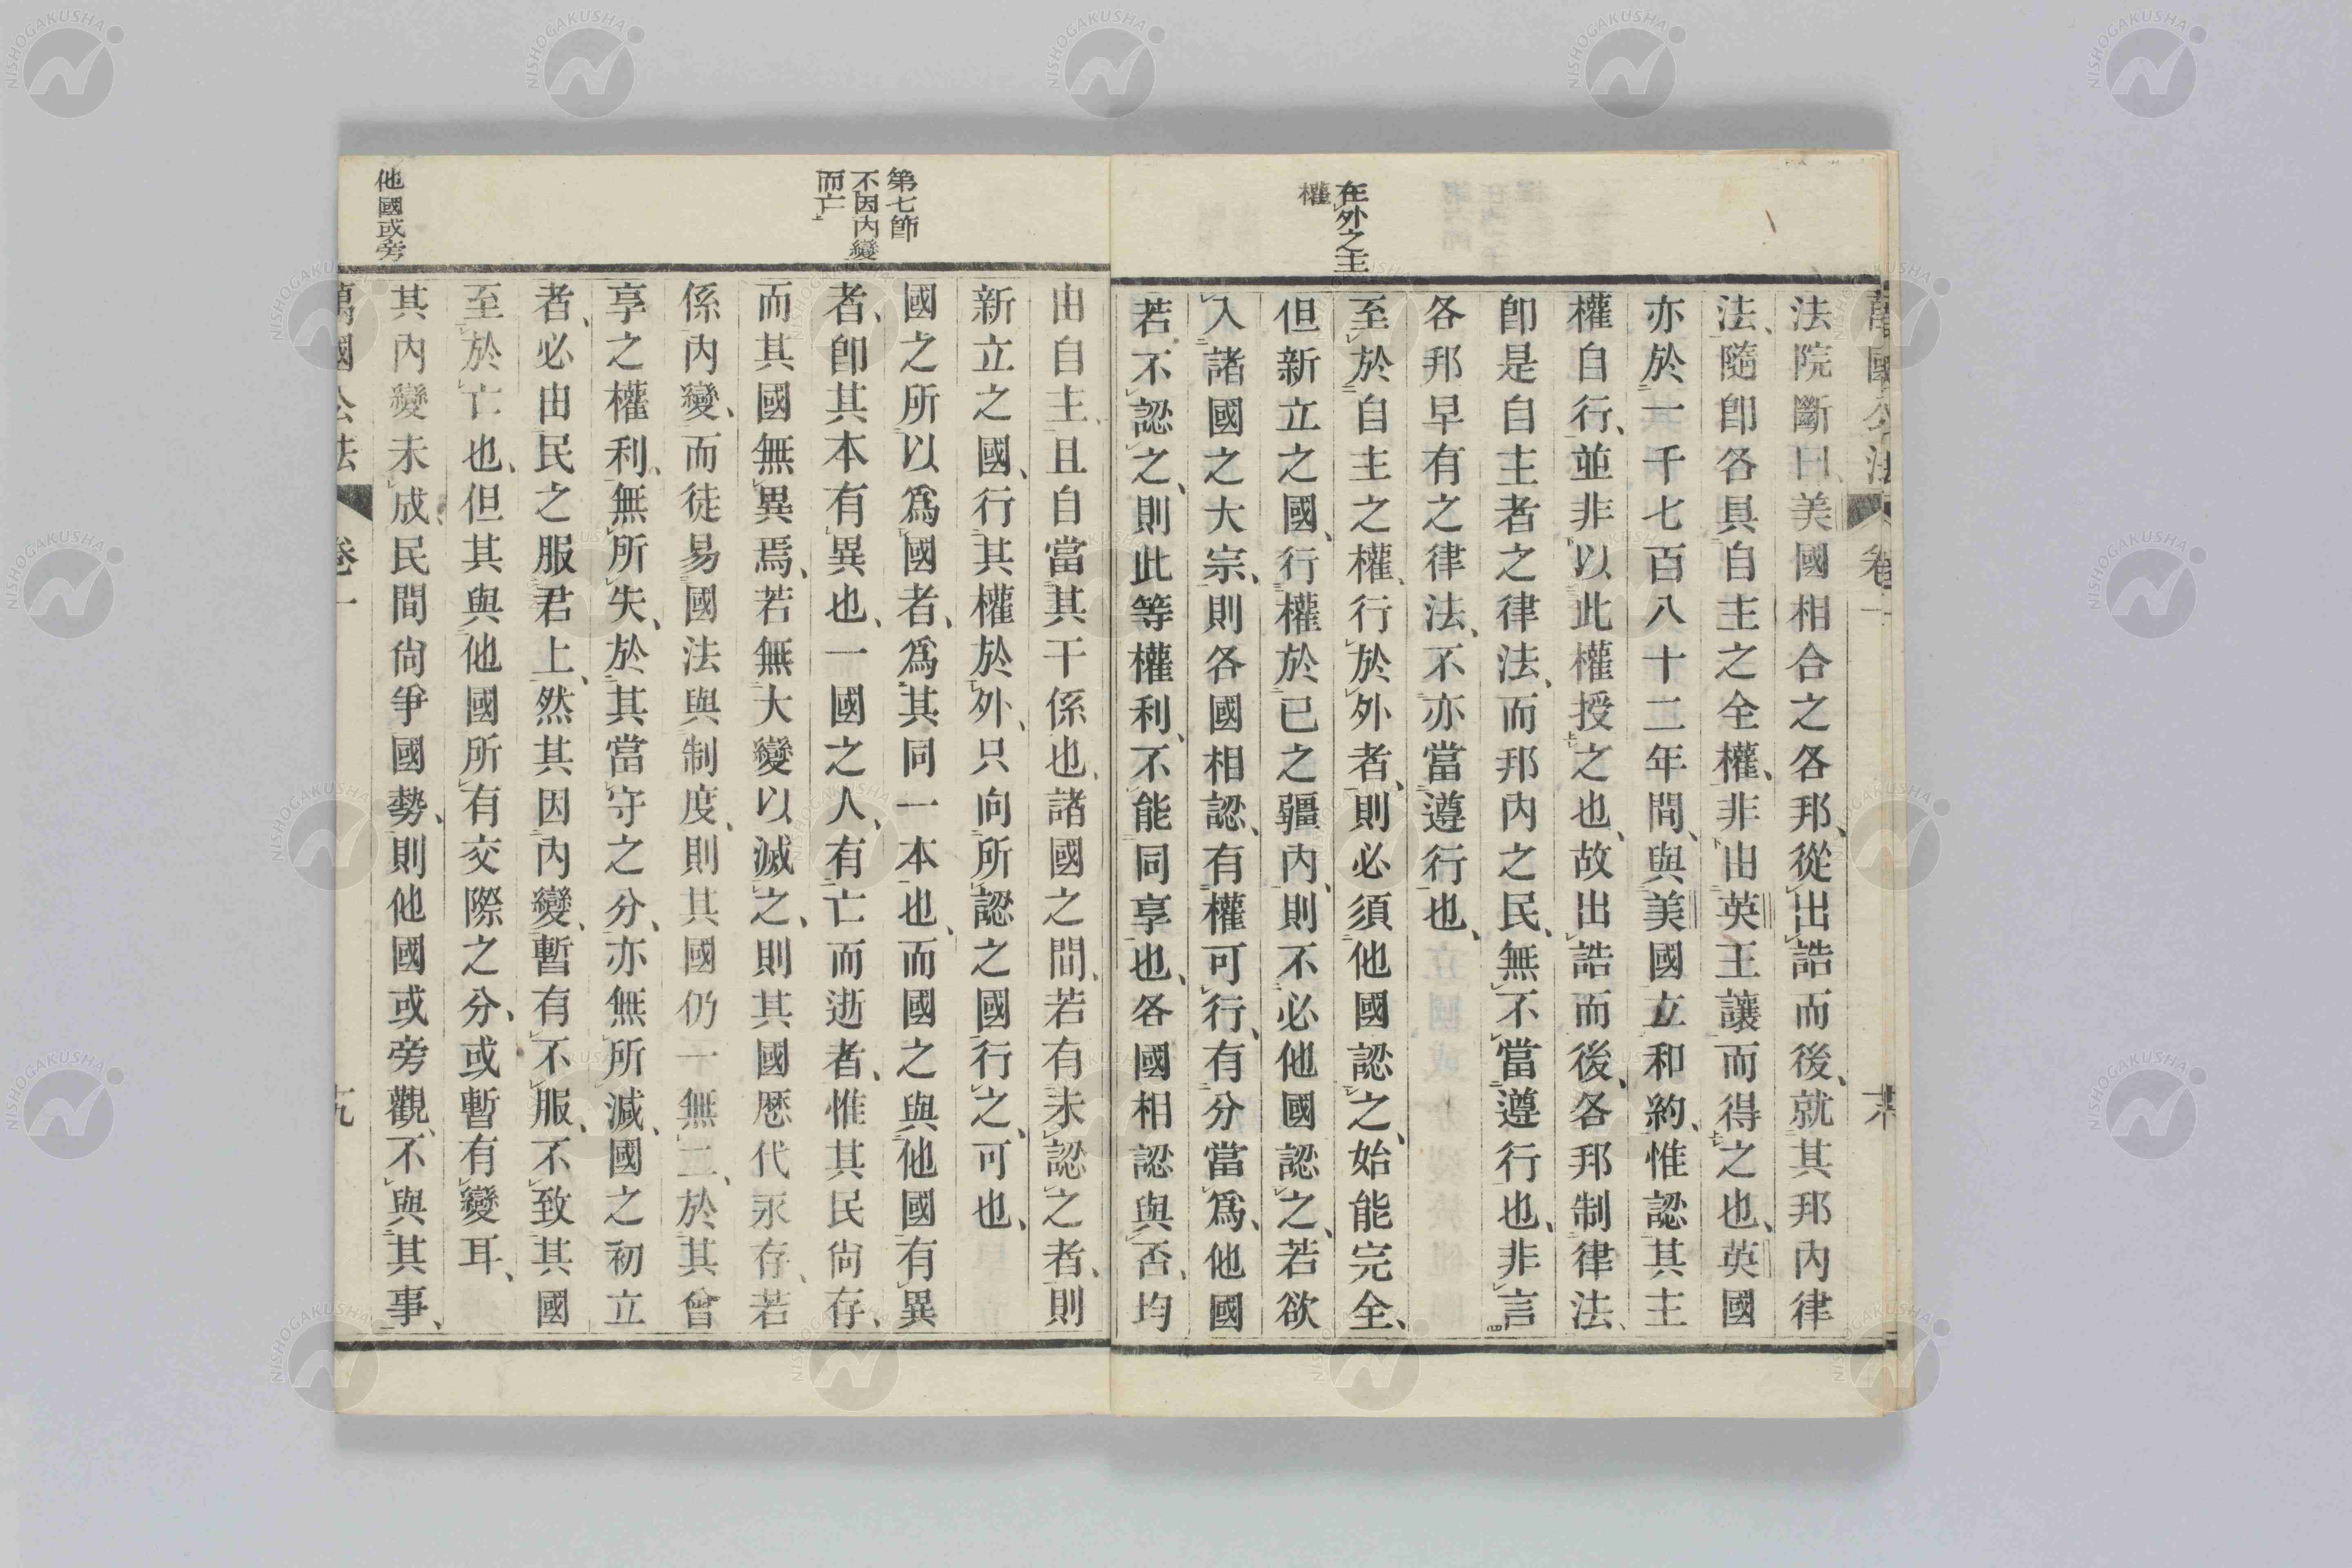 萬國公法 卷一
法院斷曰、美國相合之各邦、從出誥而後、就其邦內律
法、隨卽各具自主之全權、非由英王讓而得之也、英國
亦於一千七百八十二年間、與美國立和約、惟認其主
權自行、並非以此權授之也、故出誥而後、各邦制律法、
卽是自主者之律法、而邦內之民、無不當遵行也、非言
各邦早有之律法、不亦當遵行也、
在外之主
權
至於自主之權、行於外者、則必須他國認之、始能完全、
但新立之國、行權於已之疆內、則不必他國認之、若欲
入諸國之大宗、則各國相認、有權可行、有分當爲、他國
若不認之、則此等權利、不能同享也、各國相認與否、均
由自主、且自當其干係也、諸國之間、若有未認之者、則
新立之國、行其權於外、只向所認之國行之、可也、
第七節
不因內變
而亡
國之所以爲國者、爲其同一本也、而國之與他國有異
者、卽其本有異也、一國之人、有亡而逝者、惟其民尙存、
而其國無異焉、若無大變以滅之、則其國歷代永存、若
係內變、而徒易國法與制度、則其國仍一無二、於其曾
享之權利、無所失、於其當守之分、亦無所減、國之初立
者、必由民之服君上、然其因內變、暫有不服、不致其國
至於亡也、但其與他國所有交際之分、或暫有變耳、
他國或旁
其內變未成、民間尙爭國勢、則他國或旁觀、不與其事、
萬國公法 卷一 十九
NISHOGAKUSHA